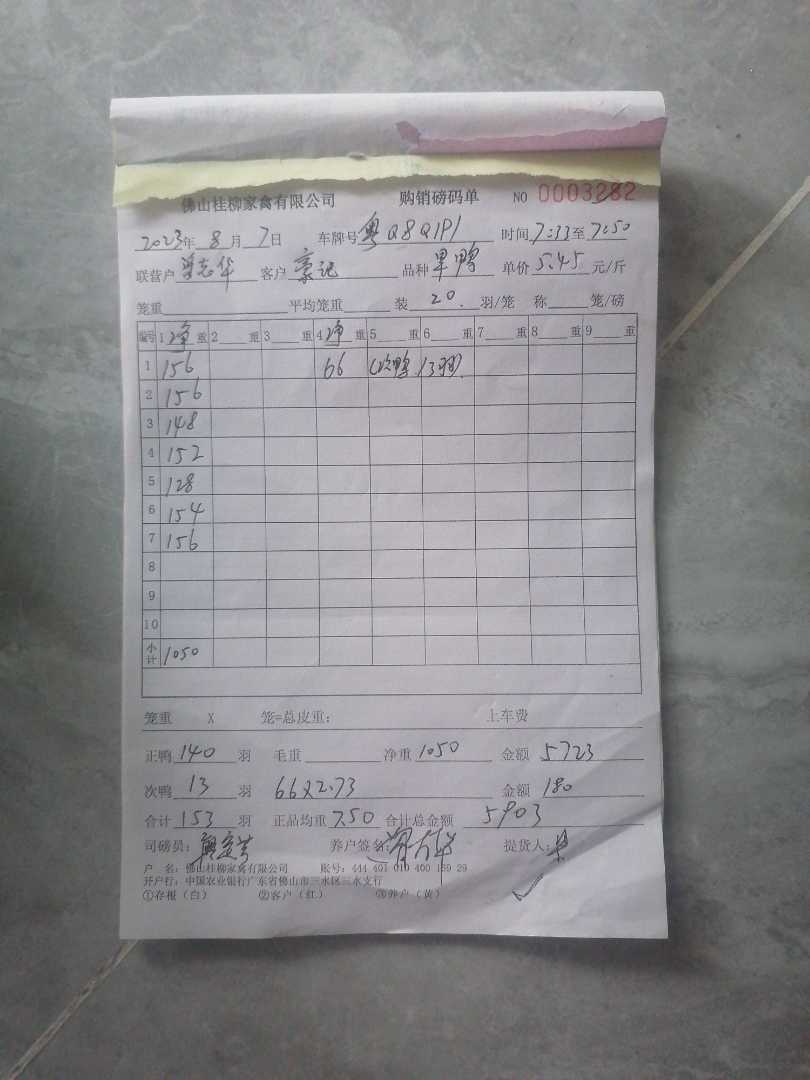 佛山桂柳家禽有限公司 购销磅码单 NO 0003282
2023年 8月 7日 车牌号 粤Q8Q1P1 时间 7:33至7:50
联营户 志华 客户 豪记 品种 果鸭 单价 5.45 元/斤
笼重 平均笼重 装 20. 羽/笼 称 笼/磅
编号 1 净 重 2 重 3 重 4 净 重 5 重 6 重 7 重 8 重 9 重
1 156 66 (次鸭 13羽)
2 156
3 148
4 152
5 128
6 154
7 156
8
9
10
小计 1050
笼重 X 笼=总皮重: 上车费
正鸭 140 羽 毛重 净重 1050 金额 5723
次鸭 13 羽 66X2.73 金额 180
合计 153 羽 正品均重 7.50 合计总金额 5903
司磅员: 养户签名: 提货人:
户 名: 佛山桂柳家禽有限公司 账号: 444 401 010 400 159 29
开户行: 中国农业银行广东省佛山市三水区三水支行
①存根(白) ②客户(红) ③养户(黄)